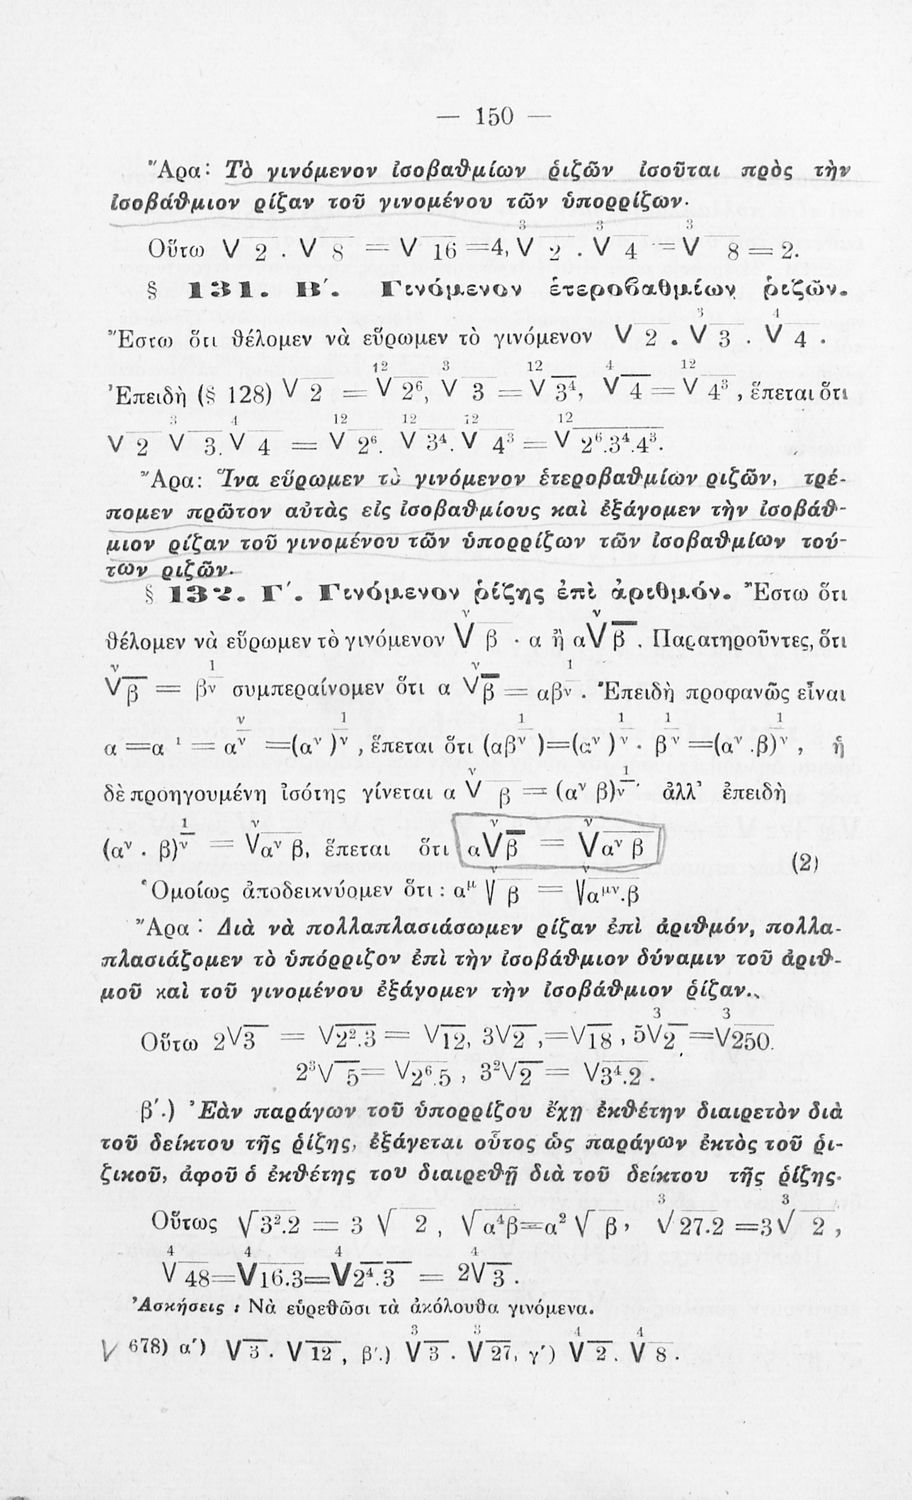 — 150 —
Ἄρα· Τὸ γινόμενον ἰσοβαθμίων ῥιζῶν ἰσοῦται πρὸς τὴν
ἰσοβάθμιον ρίζαν τοῦ γινομένου τῶν ὑπορρίζων.
Οὕτω √2 . √8 = √16 =4, ³√2 . ³√4 = ³√8 = 2.
§ 131. Β΄. Γινόμενον ἑτεροβαθμίων ῥιζῶν.
Ἔστω ὅτι θέλομεν νὰ εὕρωμεν τὸ γινόμενον √2 . ³√3 . ⁴√4 .
Ἐπειδὴ (§ 128) √2 = ¹²√2⁶, ³√3 = ¹²√3⁴, ⁴√4 = ¹²√4³ , ἕπεται ὅτι
√2 ³√3. ⁴√4 = ¹²√2⁶. ¹²√3⁴. ¹²√4³ = ¹²√2⁶.3⁴.4³.
Ἄρα: Ἵνα εὕρωμεν τὸ γινόμενον ἑτεροβαθμίων ριζῶν, τρέ-
πομεν πρῶτον αὐτὰς εἰς ἰσοβαθμίους καὶ ἐξάγομεν τὴν ἰσοβάθ-
μιον ρίζαν τοῦ γινομένου τῶν ὑπορρίζων τῶν ἰσοβαθμίων τού-
των ριζῶν.
§ 132. Γ΄. Γινόμενον ῥίζης ἐπὶ ἀριθμόν. Ἔστω ὅτι
θέλομεν νὰ εὕρωμεν τὸ γινόμενον ᵛ√β · α ἢ α ᵛ√β . Παρατηροῦντες, ὅτι
ᵛ√β = β^(1/ν) συμπεραίνομεν ὅτι α ᵛ√β = αβ^(1/ν) . Ἐπειδὴ προφανῶς εἶναι
α =α¹ = α^(ν/ν) =(α^ν)^(1/ν) , ἕπεται ὅτι (αβ^(1/ν))=(α^ν)^(1/ν) · β^(1/ν) =(α^ν.β)^(1/ν) , ἡ
δὲ προηγουμένη ἰσότης γίνεται α ᵛ√β = (α^ν β)^(1/ν) · ἀλλ᾽ ἐπειδὴ
(α^ν . β)^(1/ν) = ᵛ√α^ν β, ἕπεται ὅτι α ᵛ√β = ᵛ√α^ν β (2)
Ὁμοίως ἀποδεικνύομεν ὅτι : α^μ ᵛ√β = ᵛ√α^μν.β
Ἄρα : Διὰ νὰ πολλαπλασιάσωμεν ρίζαν ἐπὶ ἀριθμόν, πολλα-
πλασιάζομεν τὸ ὑπόρριζον ἐπὶ τὴν ἰσοβάθμιον δύναμιν τοῦ ἀριθ-
μοῦ καὶ τοῦ γινομένου ἐξάγομεν τὴν ἰσοβάθμιον ῥίζαν.
Οὕτω 2√3 = √2².3 = √12, 3√2 ,=√18 , 5 ³√2 = ³√250.
2³√5= √2⁶.5 , 3²√2 = √3⁴.2 .
β΄.) Ἐὰν παράγων τοῦ ὑπορρίζου ἔχῃ ἐκθέτην διαιρετὸν διὰ
τοῦ δείκτου τῆς ῥίζης, ἐξάγεται οὗτος ὡς παράγων ἐκτὸς τοῦ ῥι-
ζικοῦ, ἀφοῦ ὁ ἐκθέτης του διαιρεθῇ διὰ τοῦ δείκτου τῆς ῥίζης.
Οὕτως √3².2 = 3 √2 , √α⁴β=α² √β , ³√27.2 =3 ³√2 ,
⁴√48= ⁴√16.3= ⁴√2⁴.3 = 2 ⁴√3 .
Ἀσκήσεις : Νὰ εὑρεθῶσι τὰ ἀκόλουθα γινόμενα.
√ 678) α΄) √3 . √12 , β΄.) ³√3 . ³√27, γ΄) ⁴√2 . ⁴√8 .